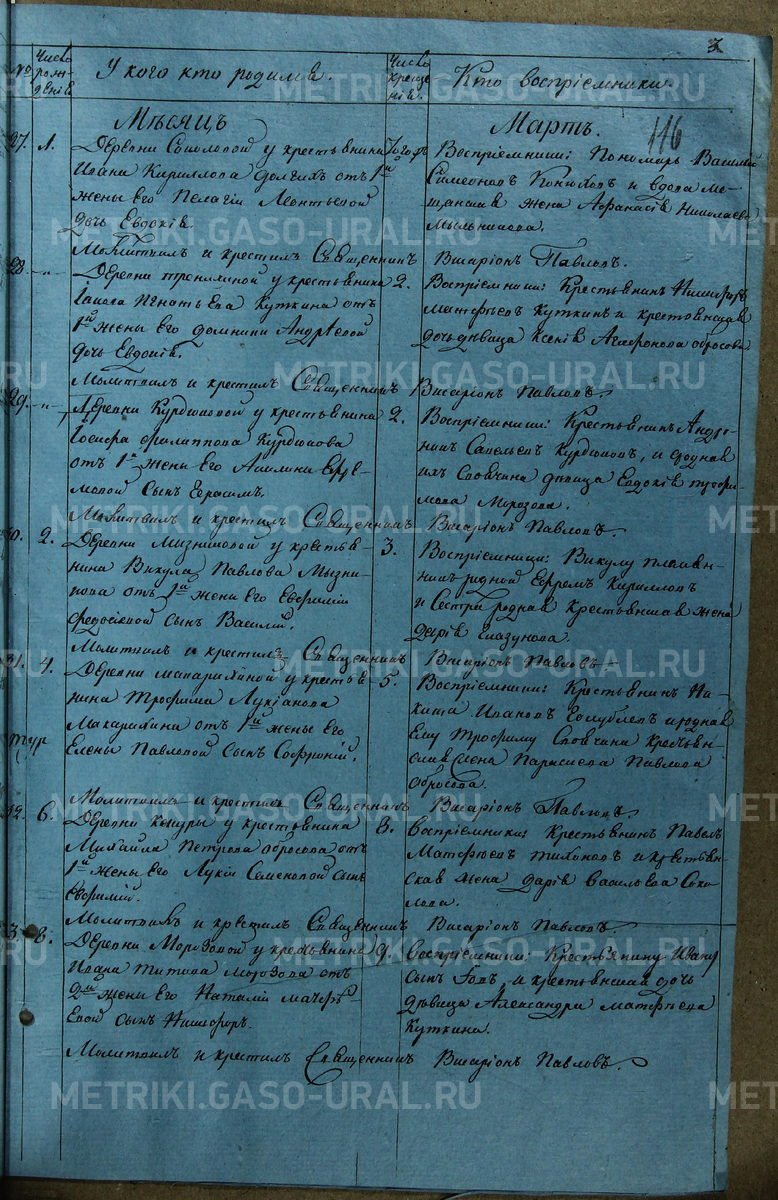 3
№
Число рождения
У кого кто родился.
Число крещения.
Кто воспріемники.
116
Мѣсяцъ
Мартъ.
27. 1.
Деревни Соколовой у крестьянина
Ивана Кириллова от 1й
жены его Пелагіи Леонтьевой
дочь Евдокія.
Воспріемники: Пономарь Василій
Симеоновъ и вдова
жена Афанасія Николаева
Мыльникова.
Молитвилъ и крестилъ Священникъ Висаріонъ Павловъ.
28. -"-
2.
Деревни у крестьянина
Іакова Игнатьева Куткина отъ
1й жены его Домники Андрѣевой
дочь Евдокія.
Воспріемники: Крестьянинъ Никифоръ
Матфѣевъ Куткинъ и крестьянская
дочь дѣвица Ксенія Обросова
Молитвилъ и крестилъ Священникъ Висаріонъ Павловъ.
29. -"-
2.
Деревни Курдюковой у крестьянина
Іосифа Филиппова Курдюкова
отъ 1й жены его Акилины Ефре-
мовой сынъ Герасимъ.
Воспріемники: Крестьянинъ
Савельевъ Курдюковъ, и
ихъ дѣвица Евдокія
Морозова.
Молитвилъ и крестилъ Священникъ Висаріонъ Павловъ.
30. 2.
3.
Деревни Мызниковой у крестья-
нина Викула Павлова Мызни-
кова отъ 1й жены его Евфиміи
Федосѣевой сынъ Василій.
Воспріемники: Викулу племян-
никъ родной Ефремъ Кирилловъ
и сестра родная крестьянская жена
Дарія Глазунова.
Молитвилъ и крестилъ Священникъ Висаріонъ Павловъ
31. 4.
5.
Деревни Макарихиной у крестья-
нина Трофима Лукіанова
Макарихина отъ 1й жены его
Елены Павловой сынъ Софроній.
Воспріемники: Крестьянинъ Ни-
кита Ивановъ и родная
ему Трофиму крестьян-
ская жена Параскева Павлова
Обросова.
Молитвилъ и крестилъ Священникъ Висаріонъ Павловъ.
32. 6.
8.
Деревни у крестьянина
Михаила Петрова Обросова отъ
1й жены его Лукіи Семеновой сынъ
Евфимій.
Воспріемники: Крестьянинъ Павелъ
Матфѣевъ Тихоновъ и крестьян-
ская жена Дарія Васильева Соко-
лова.
Молитвилъ и крестилъ Священникъ Висаріонъ Павловъ.
33. 8.
9.
Деревни Морозовой у крестьянина
Ивана Титова Морозова отъ
2й жены его Наталіи Матфѣ-
евой сынъ Никифоръ.
Воспріемники: Крестьянину Ивану
сынъ и крестьянская дочь
дѣвица Александра Матфѣева
Куткина.
Молитвилъ и крестилъ Священникъ Висаріонъ Павловъ.
METRIKI.GASO-URAL.RU